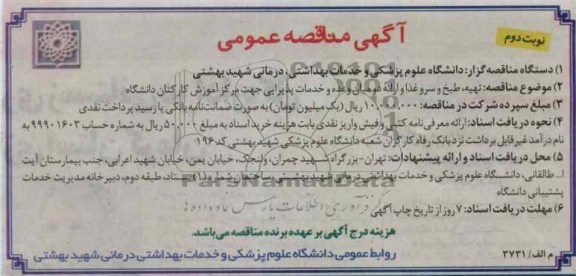 آگهی مناقصه عمومی
نوبت دوم
۱) دستگاه مناقصه گزار: دانشگاه علوم پزشکی و خدمات بهداشتی، درمانی شهید بهشتی
۲) موضوع مناقصه: تهیه، طبخ و سرو غذا و ارائه میان وعده و خدمات پذیرایی جهت مرکز آموزش کارکنان دانشگاه
۳) مبلغ سپرده شرکت در مناقصه: ۱۰,۰۰۰,۰۰۰ ریال (یک میلیون تومان) به صورت ضمانت‌نامه بانکی یا رسید پرداخت نقدی
۴) نحوه دریافت اسناد: ارائه معرفی نامه کتبی و فیش واریز نقدی بابت هزینه خرید اسناد به مبلغ ۵۰۰,۰۰۰ ریال به شماره حساب ۹۹۹۰۱۶۰۳ به
نام درآمد غیرقابل برداشت نزد بانک رفاه کارگران شعبه دانشگاه علوم پزشکی شهید بهشتی کد ۱۹۶
۵) محل دریافت اسناد و ارائه پیشنهادات: تهران - بزرگراه شهید چمران، ولنجک، خیابان یمن، خیابان شهید اعرابی، جنب بیمارستان آیت
ا... طالقانی، دانشگاه علوم پزشکی و خدمات بهداشتی درمانی شهید بهشتی، ساختمان شماره (۱) ستاد، طبقه دوم، دبیرخانه مدیریت خدمات
پشتیبانی دانشگاه
۶) مهلت دریافت اسناد: ۷ روز از تاریخ چاپ آگهی
ParsNamadData
گرد آوری اطلاعات پارس نماد داده‌ها
هزینه درج آگهی بر عهده برنده مناقصه می‌باشد.
روابط عمومی دانشگاه علوم پزشکی و خدمات بهداشتی درمانی شهید بهشتی
م الف / ۳۷۳۱